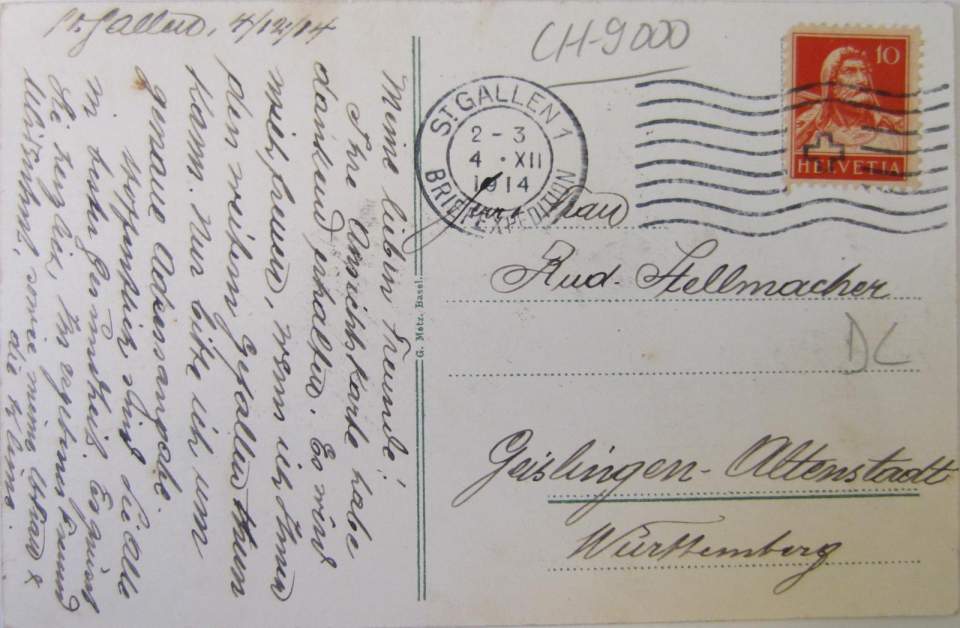 St. Gallen, 4/12/14
Meine lieben Freunde!
Ihre Ansichtskarte habe
dankend erhalten. Es wird
mich freuen, wenn ich Ihnen
den weitern Gefallen thun
kann. Nur bitte ich um
genaue Adressangabe.
Hoffentlich sind Sie Alle
in bester Gesundheit. Es grüsst
Sie herzlich, Ihr ergebener Freund
sowie meine &
die Kleine.
G. Metz, Basel.
CH-9000
ST. GALLEN 1
2 - 3
4 · XII
1914
BRIEFEXPEDITION
10
HELVETIA
Herr & Frau
Rud. Stellmacher
DL
Geislingen-Altenstadt
Württemberg